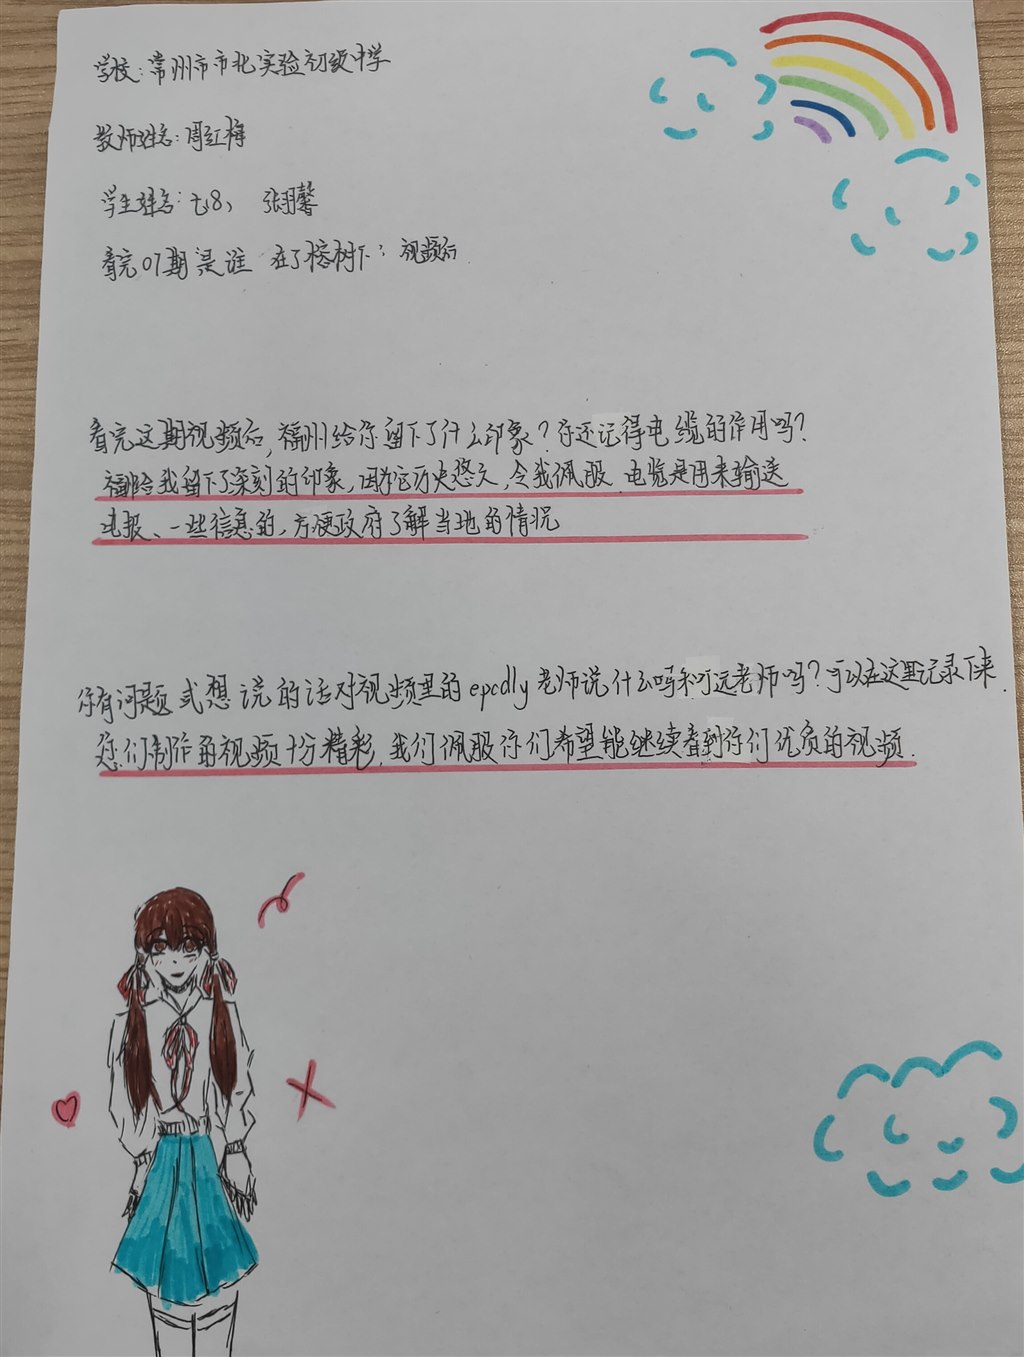 学校:常州市市北实验初级中学
教师姓名:周红梅
学生姓名:七8, 张玥馨
看完01期"是谁 在了榕树下"视频后
看完这期视频后,福州给你留下了什么印象?你还记得电缆的作用吗?
福州给我留下了深刻的印象,因为它历史悠久,令我佩服.电缆是用来输送
电报、一些信息的,方便政府了解当地的情况
你有问题或想说的话对视频里的epcdly老师说什么吗和可远老师吗?可以在这里记录下来.
您们制作的视频十分精彩,我们佩服你们希望能继续看到你们优质的视频.